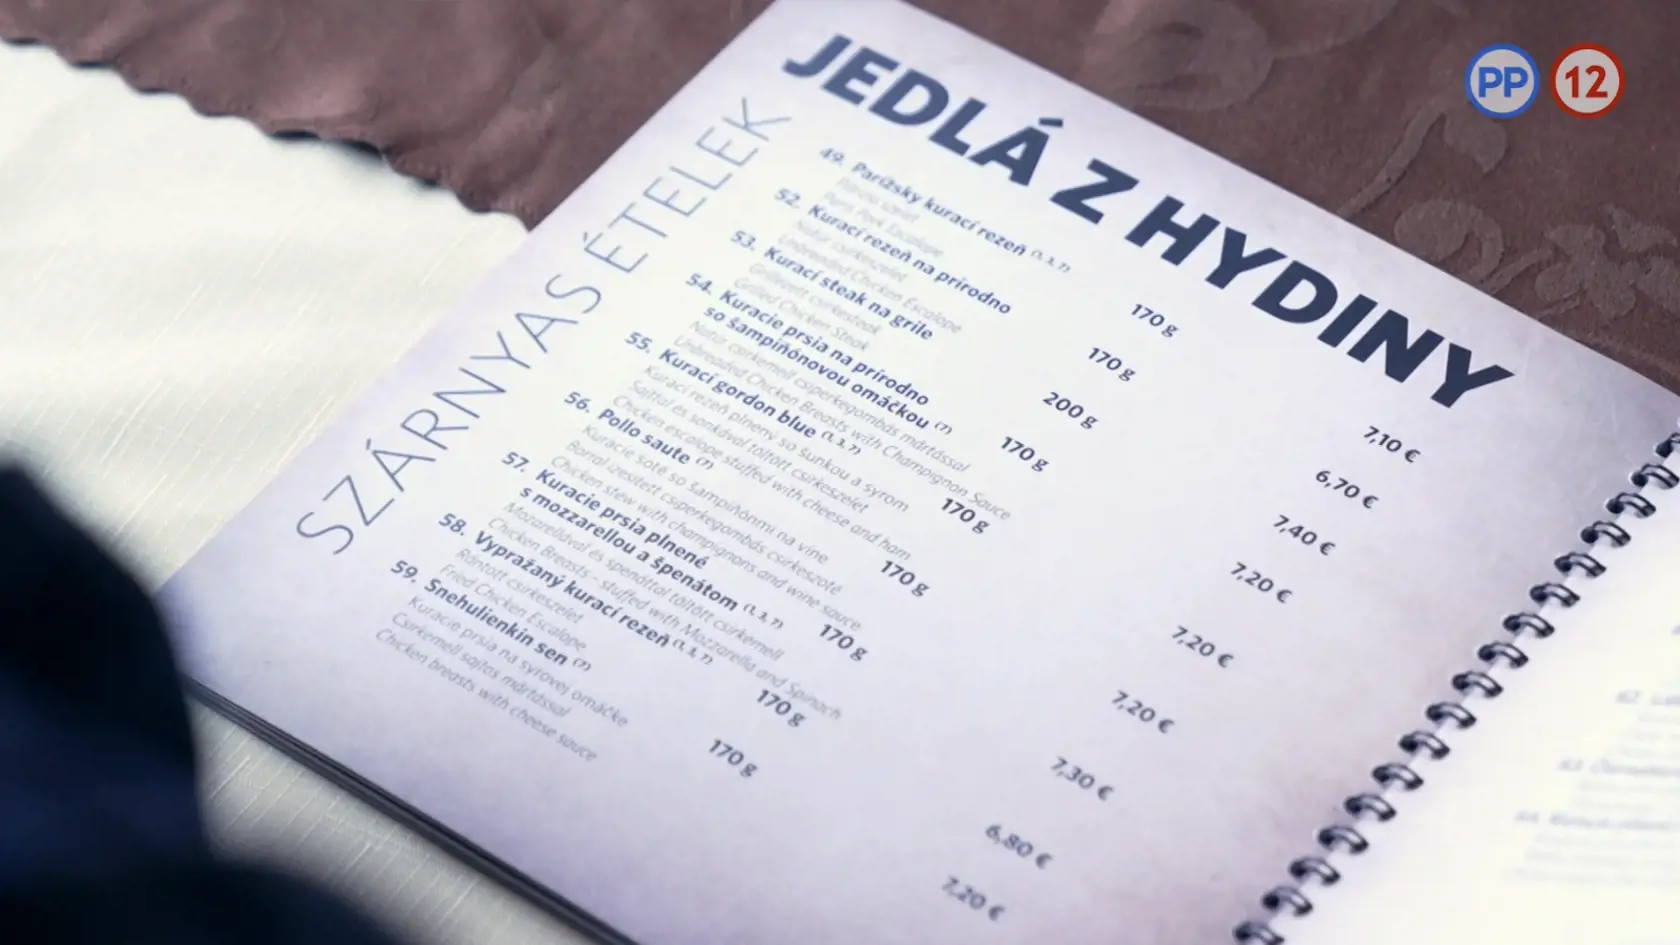 PP 12
JEDLÁ Z HYDINY
SZÁRNYAS ÉTELEK
49. Parížsky kurací rezeň (1, 3, 7) 170 g 7,10 €
Párizsi szelet
Paris Pork Escalope
52. Kurací rezeň na prírodno 170 g 6,70 €
Natúr csirkeszelet
Unbreaded Chicken Escalope
53. Kurací steak na grile 200 g 7,40 €
Grillezett csirkesteak
Grilled Chicken Steak
54. Kuracie prsia na prírodno
so šampiňónovou omáčkou (7) 170 g 7,20 €
Natúr csirkemell csiperkegombás mártással
Unbreaded Chicken Breasts with Champignon Sauce
55. Kurací gordon blue (1, 3, 7) 170 g 7,20 €
Kurací rezeň plnený so šunkou a syrom
Sajttal és sonkával töltött csirkeszelet
Chicken escalope stuffed with cheese and ham
56. Pollo saute (7) 170 g 7,20 €
Kuracie soté so šampiňónmi na víne
Borral ízesített csiperkegombás csirkeszoté
Chicken stew with champignons and wine sauce
57. Kuracie prsia plnené
s mozzarellou a špenátom (1, 3, 7) 170 g 7,30 €
Mozarellával és spenóttal töltött csirkemell
Chicken Breasts - stuffed with Mozzarella and Spinach
58. Vyprážaný kurací rezeň (1, 3, 7) 170 g 6,80 €
Rántott csirkeszelet
Fried Chicken Escalope
59. Snehulienkin sen (7) 170 g 7,20 €
Kuracie prsia na syrovej omáčke
Csirkemell sajtos mártással
Chicken breasts with cheese sauce